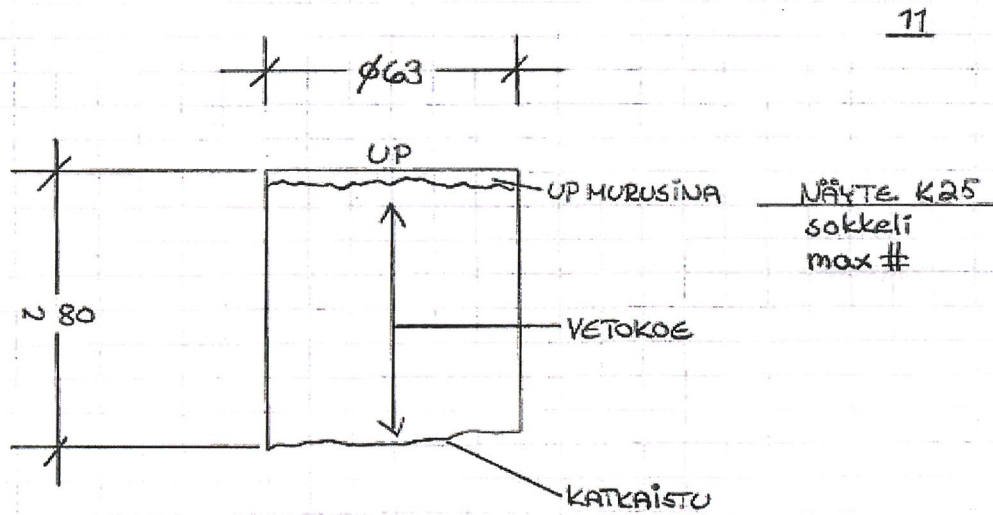 11
ø63
UP
UP MURUSINA
NÄYTE K25
sokkeli
max #
~ 80
VETOKOE
KATKAISTU